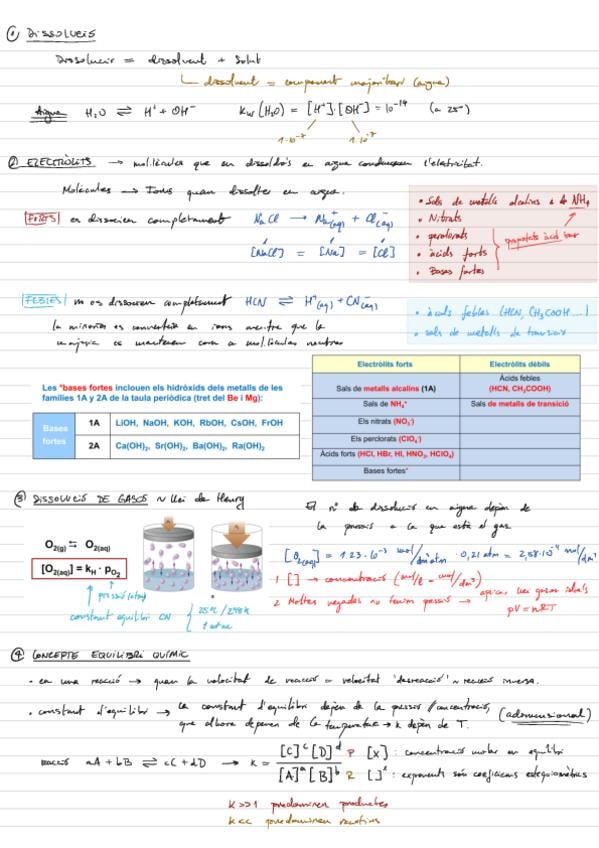 1 DISSOLUCIÓ
Dissolució = dissolvent + solut
dissolvent = component majoritari (aigua)
Aigua H₂O ⇌ H⁺ + OH⁻ Kw (H₂O) = [H⁺]·[OH⁻] = 10⁻¹⁴ (a 25º)
1·10⁻⁷ 1·10⁻⁷
2 ELECTRÒLITS → mol·lècules que en dissoldre's en aigua condueixen l'electricitat.
Molècules → Ions quan dissoltes en aigua.
FORTS es dissocien completament NaCl → Na⁺(aq) + Cl⁻(aq)
[NaCl] = [Na] = [Cl]
• Sals de metalls alcalins a de NH₄
• Nitrats
• perclorats
• àcids forts
• Bases fortes
FEBLES no es dissocien completament HCN ⇌ H⁺(aq) + CN⁻(aq)
la minoria es converteix en ions mentre que la
majoria es mantenen com a mol·lècules neutres
• àcids febles (HCN, CH₃COOH...)
• sals de metalls de transició
Les *bases fortes inclouen els hidròxids dels metalls de les
famílies 1A y 2A de la taula periòdica (tret del Be i Mg):
Bases fortes
1A LiOH, NaOH, KOH, RbOH, CsOH, FrOH
2A Ca(OH)₂, Sr(OH)₂, Ba(OH)₂, Ra(OH)₂
Electròlits forts Electròlits dèbils
Sals de metalls alcalins (1A) Àcids febles (HCN, CH₃COOH)
Sals de NH₄⁺ Sals de metalls de transició
Els nitrats (NO₃⁻)
Els perclorats (ClO₄⁻)
Àcids forts (HCl, HBr, HI, HNO₃, HClO₄)
Bases fortes*
3 DISSOLUCIÓ DE GASOS ~ Llei de Henry
O₂(g) ⇆ O₂(aq)
[O₂(aq)] = k_H · p_O₂
pressió (atm)
constant equilibri CN { 25ºC / 298K
1 atm
El nº de dissolució en aigua depèn de
la pressió a la que està el gas.
[O₂(aq)] = 1.23·10⁻³ mol/dm³atm · 0,21 atm = 2,58·10⁻⁴ mol/dm³
1 [ ] → concentració (mol/l = mol/dm³)
2 Moltes vegades no tenim pressió → aplicar llei gasos ideals
pV = nRT
4 CONCEPTE EQUILIBRI QUÍMIC
• en una reacció → quan la velocitat de reacció = velocitat 'desreacció' ~ reacció inversa.
• constant d'equilibri → la constant d'equilibri depèn de la pressió / concentració,
que alhora depenen de la temperatura → k depèn de T. (adimensional)
reacció aA + bB ⇌ cC + dD → k = [C]ᶜ[D]ᵈ / [A]ᵃ[B]ᵇ P R
[X] : concentració molar en equilibri
[ ]ˣ : exponents són coeficients estequiomètrics
k >> 1 predominen productes
k << predominen reactius